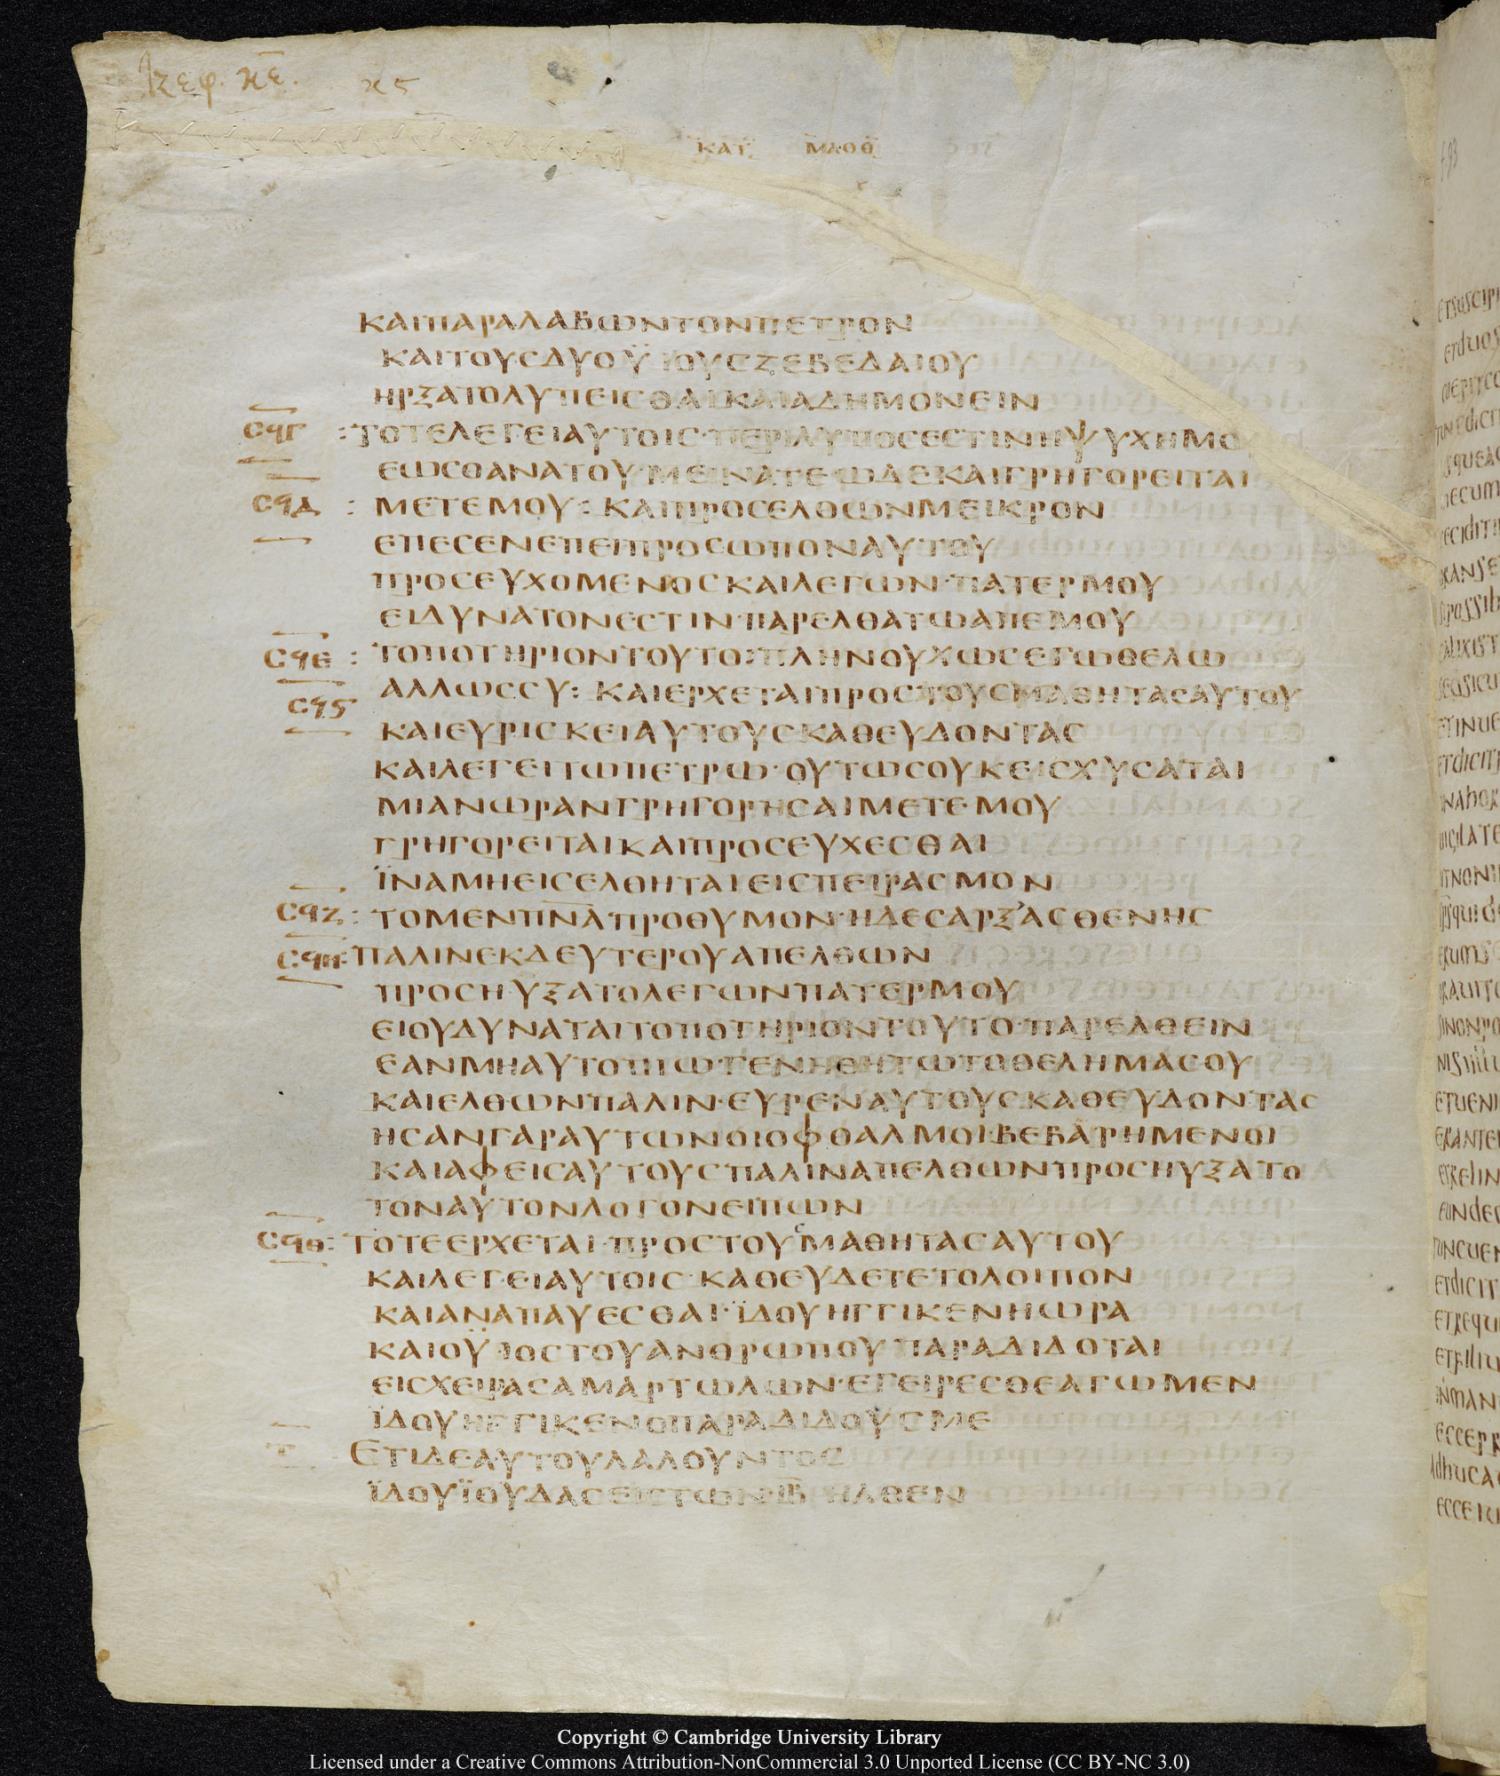 κεφ. κε. κϛ
ΚΑΤ ΜΑΘΘ
ΚΑΙΠΑΡΑΛΑΒΩΝΤΟΝΠΕΤΡΟΝ
ΚΑΙΤΟΥСΔΥΟΫΙΟΥСΖΕΒΕΔΑΙΟΥ
ΗΡΞΑΤΟΛΥΠΕΙСΘΑΙΚΑΙΑΔΗΜΟΝΕΙΝ
СϞΓ : ΤΟΤΕΛΕΓΕΙΑΥΤΟΙС·ΠΕΡΙΛΥΠΟСΕСΤΙΝΗΨΥΧΗΜΟΥ
ΕΩСΘΑΝΑΤΟΥ·ΜΕΙΝΑΤΕΩΔΕΚΑΙΓΡΗΓΟΡΕΙΤΑΙ
СϞΔ : ΜΕΤΕΜΟΥ: ΚΑΙΠΡΟСΕΛΘΩΝΜΕΙΚΡΟΝ
ΕΠΕСΕΝΕΠΕΙΠΡΟСΩΠΟΝΑΥΤΟΥ
ΠΡΟСΕΥΧΟΜΕΝΟСΚΑΙΛΕΓΩΝ·ΠΑΤΕΡΜΟΥ
ΕΙΔΥΝΑΤΟΝΕСΤΙΝ·ΠΑΡΕΛΘΑΤΩΑΠΕΜΟΥ
СϞΕ : ΤΟΠΟΤΗΡΙΟΝΤΟΥΤΟ:ΠΛΗΝΟΥΧΩСΕΓΩΘΕΛΩ
СϞϛ ΑΛΛΩССΥ: ΚΑΙΕΡΧΕΤΑΙΠΡΟСΤΟΥСΜΑΘΗΤΑСΑΥΤΟΥ
ΚΑΙΕΥΡΙСΚΕΙΑΥΤΟΥСΚΑΘΕΥΔΟΝΤΑС
ΚΑΙΛΕΓΕΙΤΩΠΕΤΡΩ·ΟΥΤΩСΟΥΚΕΙСΧΥСΑΤΑΙ
ΜΙΑΝΩΡΑΝΓΡΗΓΟΡΗСΑΙΜΕΤΕΜΟΥ
ΓΡΗΓΟΡΕΙΤΑΙΚΑΙΠΡΟСΕΥΧΕСΘΑΙ
ΪΝΑΜΗΕΙСΕΛΘΗΤΑΙΕΙСΠΕΙΡΑСΜΟΝ
СϞΖ : ΤΟΜΕΝΠΝΑΠΡΟΘΥΜΟΝ·ΗΔΕСΑΡΞΑСΘΕΝΗС
СϞΗ: ΠΑΛΙΝΕΚΔΕΥΤΕΡΟΥΑΠΕΛΘΩΝ
ΠΡΟСΗΥΞΑΤΟΛΕΓΩΝΠΑΤΕΡΜΟΥ
ΕΙΟΥΔΥΝΑΤΑΙΤΟΠΟΤΗΡΙΟΝΤΟΥΤΟ·ΠΑΡΕΛΘΕΙΝ
ΕΑΝΜΗΑΥΤΟΠΙΩ·ΓΕΝΗΘΗΤΩΤΟΘΕΛΗΜΑСΟΥ
ΚΑΙΕΛΘΩΝΠΑΛΙΝ·ΕΥΡΕΝΑΥΤΟΥСΚΑΘΕΥΔΟΝΤΑС
ΗСΑΝΓΑΡΑΥΤΩΝΟΙΟΦΘΑΛΜΟΙ·ΒΕΒΑΡΗΜΕΝΟΙ
ΚΑΙΑΦΕΙСΑΥΤΟΥСΠΑΛΙΝΑΠΕΛΘΩΝΠΡΟСΗΥΞΑΤΟ
ΤΟΝΑΥΤΟΝΛΟΓΟΝΕΙΠΩΝ
СϞΘ: ΤΟΤΕΕΡΧΕΤΑΙ·ΠΡΟСΤΟΥСΜΑΘΗΤΑСΑΥΤΟΥ
ΚΑΙΛΕΓΕΙΑΥΤΟΙС·ΚΑΘΕΥΔΕΤΕΤΟΛΟΙΠΟΝ
ΚΑΙΑΝΑΠΑΥΕСΘΑΙ·ΪΔΟΥΗΓΓΙΚΕΝΗΩΡΑ
ΚΑΙΟΫΙΟСΤΟΥΑΝΘΡΩΠΟΥΠΑΡΑΔΙΔΟΤΑΙ
ΕΙСΧΕΙΡΑСΑΜΑΡΤΩΛΩΝ·ΕΓΕΙΡΕСΘΕΑΓΩΜΕΝ
ΪΔΟΥΗΓΓΙΚΕΝΟΠΑΡΑΔΙΔΟΥСΜΕ
Τ ΕΤΙΔΕΑΥΤΟΥΛΑΛΟΥΝΤΟС
ΪΔΟΥΪΟΥΔΑСΕΙСΤΩΝ·ΙΒ ΗΛΘΕΝ
Copyright © Cambridge University Library
Licensed under a Creative Commons Attribution-NonCommercial 3.0 Unported License (CC BY-NC 3.0)